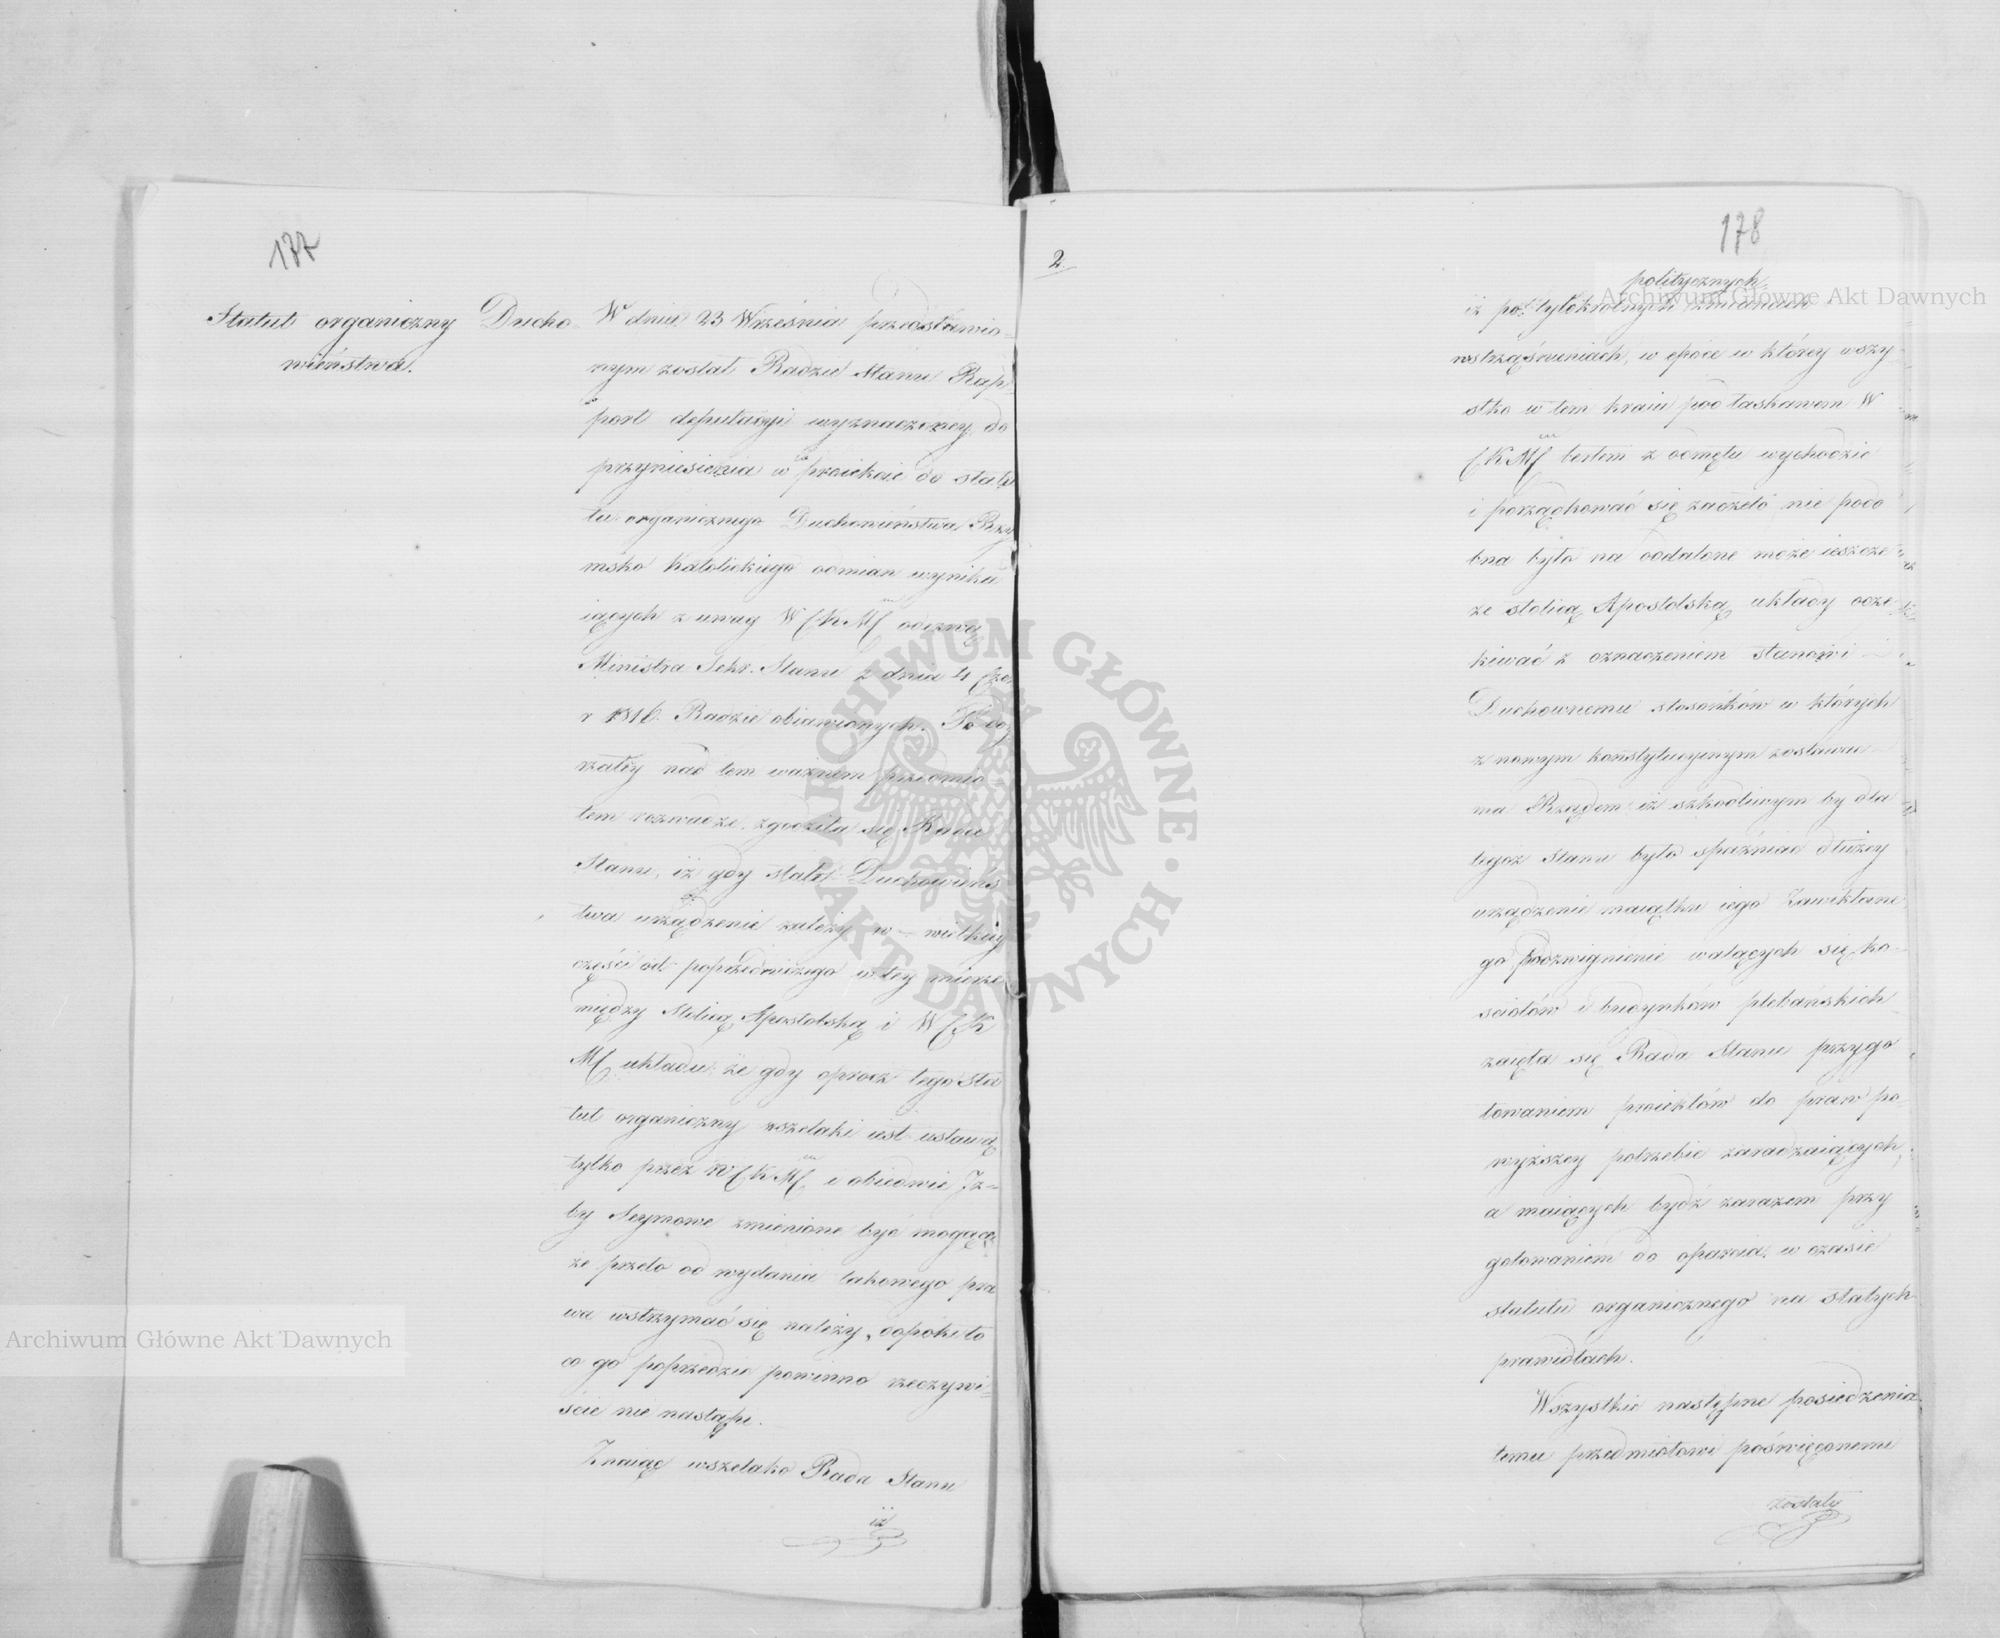 177
Statut organiczny Ducho
wieństwa.
W dniu 23 Września przedstawio-
nym został Radzie Stanu Rap-
port deputacyi wyznaczoney do
przyniesienia w proiekcie do statu
tu organicznego Duchowieństwa Rzy
msko Katolickiego odmian wynika
iących z uwag W C K Mci odezwą
Ministra Sekr. Stanu z dnia 4
r 1816. Radzie obiawionych. Po doy
rzałéy nad tem ważnem przedmio
tem rozwadze, zgodziła się Rada
Stanu, iż gdy stałe Duchowieńs
twa urządzenie zależy w wielkiey
części od poprzedniczego w tey mierze
między Stolicą Apostolską i W C K
M układu; że gdy oprócz tego Sta
tut organiczny wszelaki iest ustawą
tylko przez W C K M i obiedwie Iz-
by Seymowe zmienione być mogące
że przeto od wydania takowego pra
wa wstrzymać się należy, dopóki to
co go poprzedzić powinno rzeczywi-
ście nie nastąpi.
Znaiąc wszelako Rada Stanu
iż
2
178
politycznych
iż po tylokrotnych zmianach
wstrząśnieniach, w epoce w którey wszy-
stko w tem kraiu pod łaskawem W
C K M berłem z odmętu wychodzić
i porządkować się zaczęło nie podo
bna było na oddalone może ieszcze
ze stolicą Apostolską układy ocze
kiwać z oznaczeniem stanowi
Duchownemu stosunków w których
z nowym konstytucyinym zostawa
ma Rządem iż szkodliwym by dla
tegoż stanu było spaźniać dłużey
urządzenie maiątku iego Zawikłane
go Podzwignienie walących się ko-
sciołów i budynkow plebańskich
zaięła się Rada Stanu przygo
towaniem proiektów do praw po-
wyższey potrzebie zaradzaiących,
a maiących bydź zarazem przy
gotowaniem do oparcia w czasie
statutu organicznego na stałych
prawidłach.
Wszystkie następne posiedzenia
temu przedmiotowi poświęconemi
zostały
Archiwum Główne Akt Dawnych
Archiwum Główne Akt Dawnych
ARCHIWUM GŁÓWNE
· AKT DAWNYCH ·